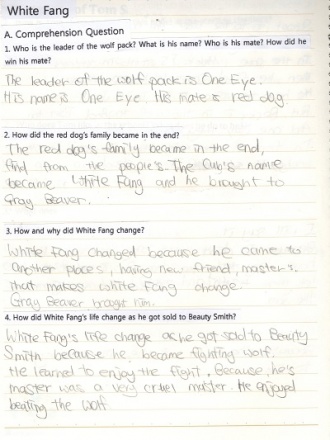 White Fang
A. Comprehension Question
1. Who is the leader of the wolf pack? What is his name? Who is his mate? How did he
win his mate?
The leader of the wolf pack is One Eye.
His name is One Eye. His mate is red dog.
2. How did the red dog's family became in the end?
The red dog's family became in the end,
find from the people's. The Cub's name
became White Fang and he brought to
Gray Beaver.
3. How and why did White Fang change?
White Fang changed because he came to
another places, having new friend, master's.
that makes white Fang change.
Gray Beaver brought him.
4. How did White Fang's life change as he got sold to Beauty Smith?
White Fang's life change as he got sold to Beauty
Smith because he become fighting wolf.
He learned to enjoy the fight. Because, he's
master was a very cruel master. He enjoyed
beating the wolf